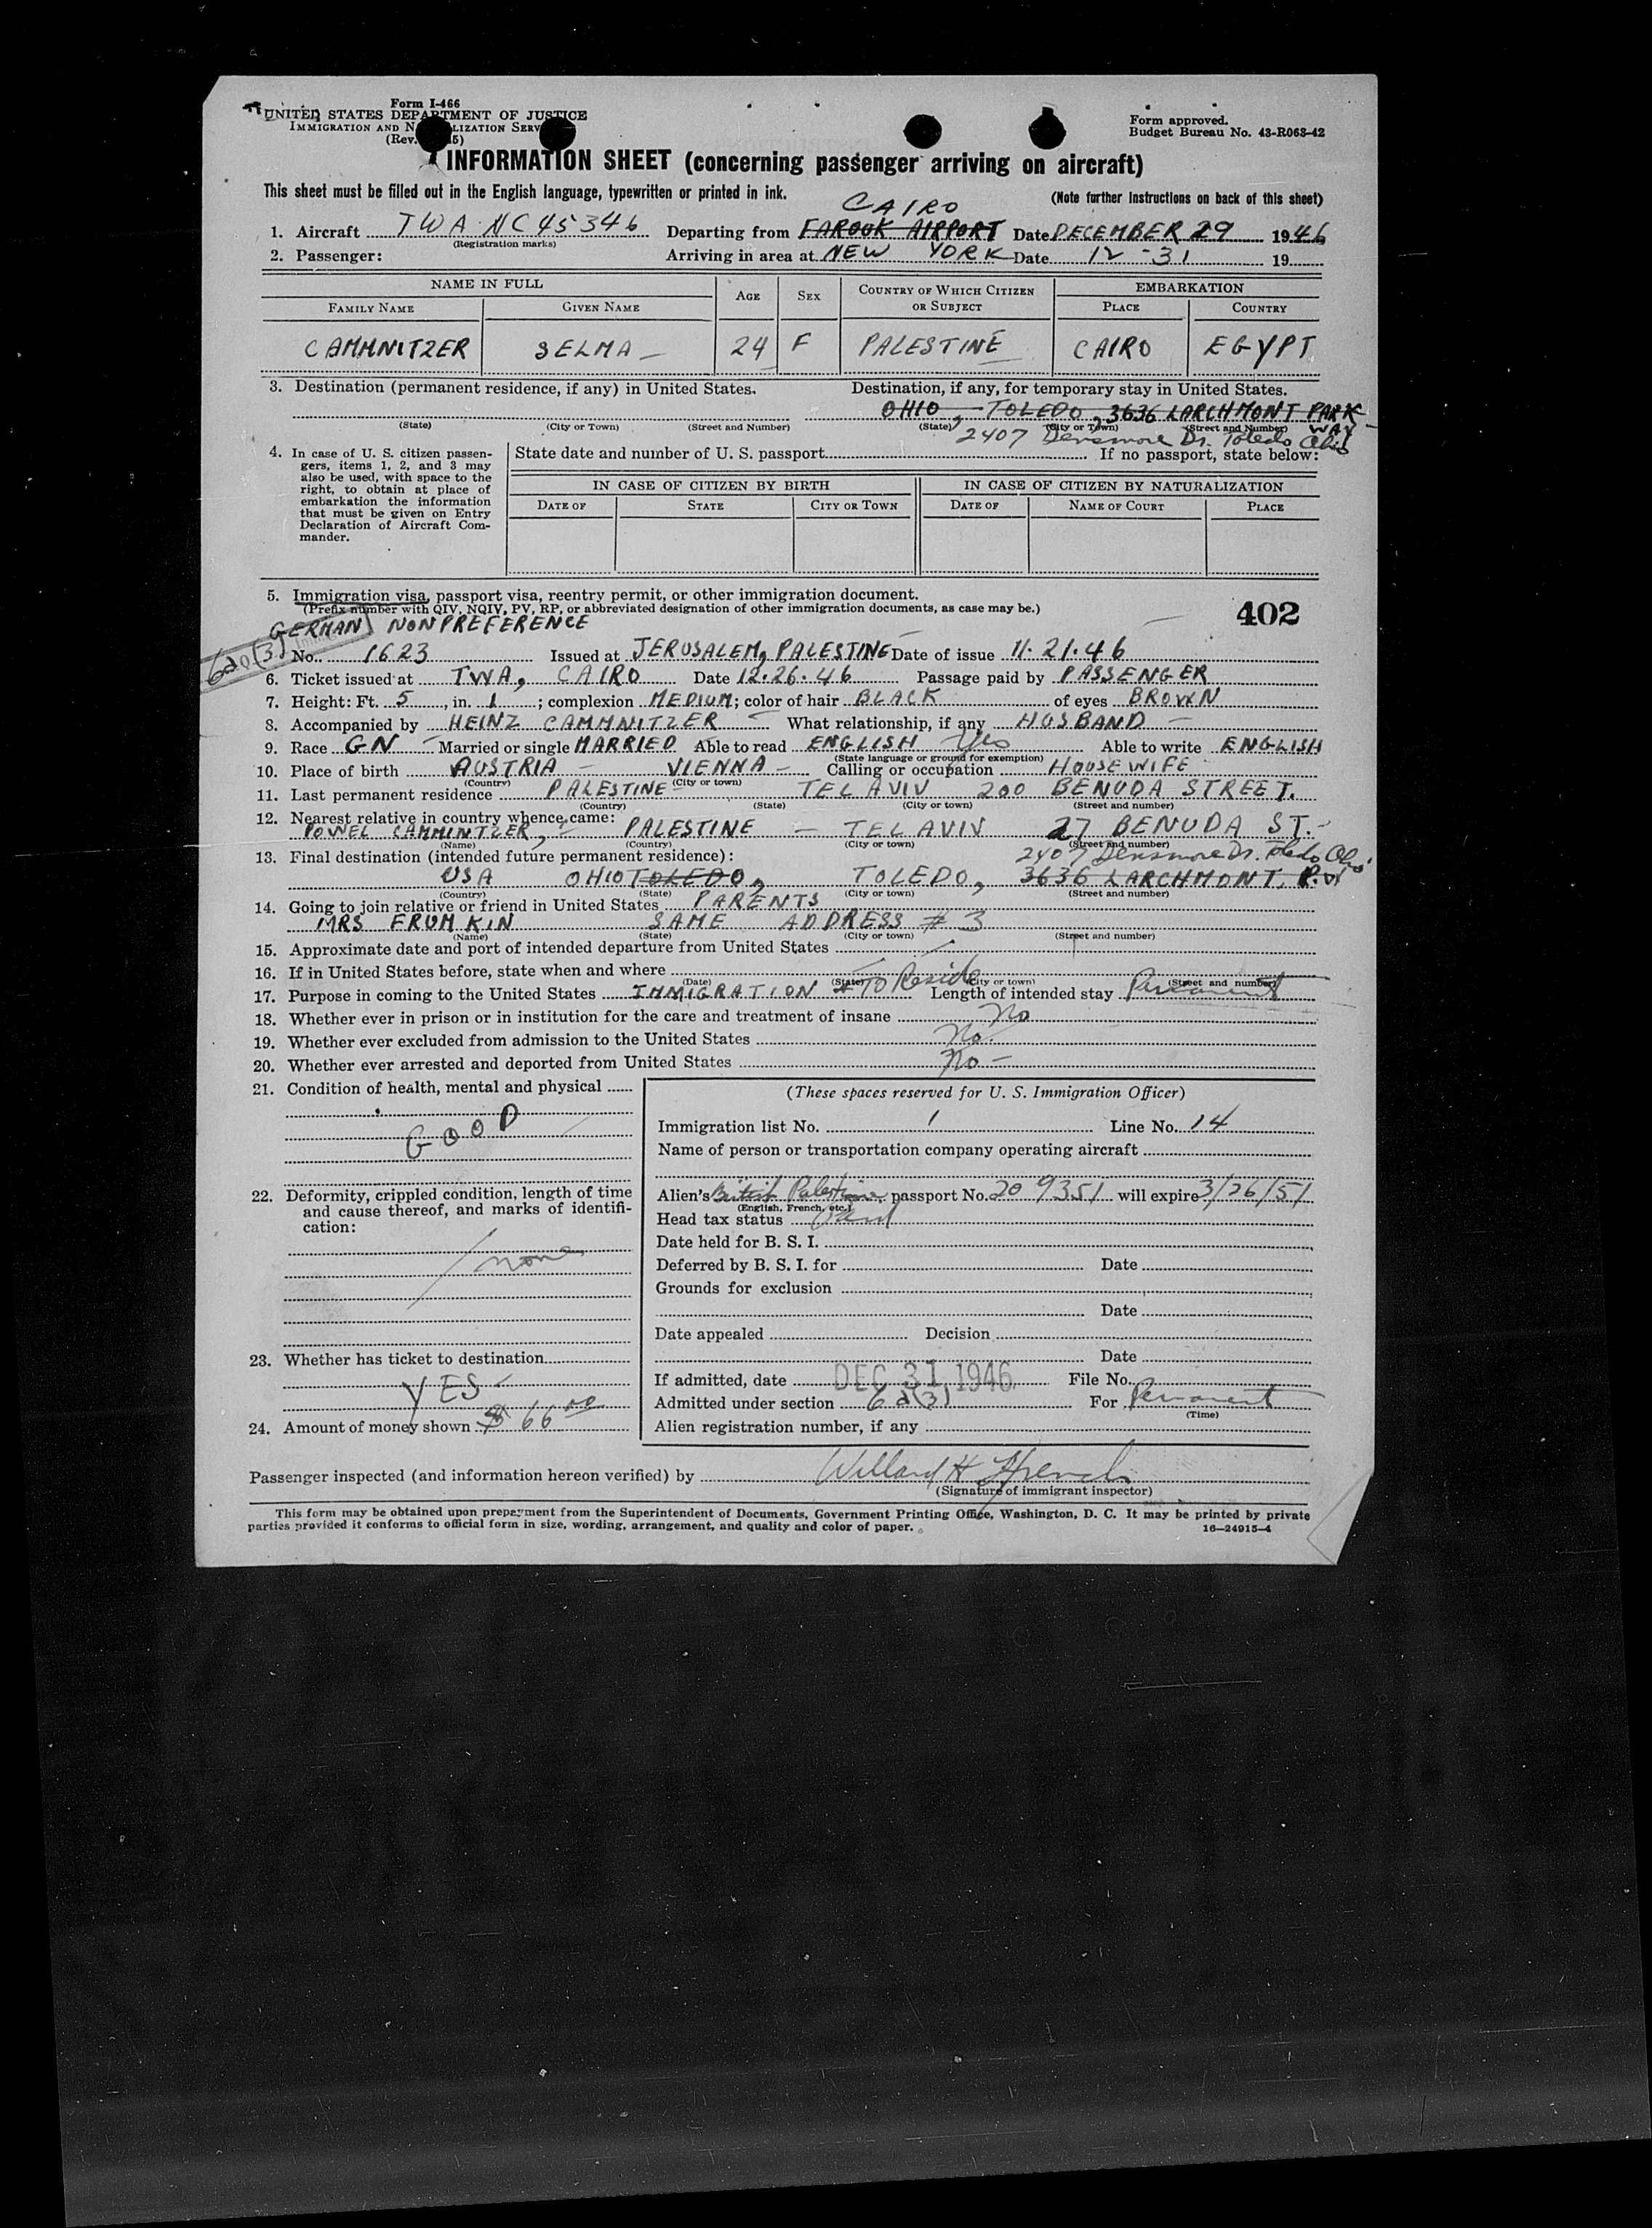 Form I-466
UNITED STATES DEPARTMENT OF JUSTICE
IMMIGRATION AND N LIZATION SERV
(Rev. 5)
Form approved.
Budget Bureau No. 43-R063-42
INFORMATION SHEET (concerning passenger arriving on aircraft)
This sheet must be filled out in the English language, typewritten or printed in ink.
(Note further instructions on back of this sheet)
CAIRO
1. Aircraft TWA NC45346 Departing from FAROUK AIRPORT Date DECEMBER 29 1946
(Registration marks)
2. Passenger: Arriving in area at NEW YORK Date 12-31 19
NAME IN FULL AGE SEX COUNTRY OF WHICH CITIZEN OR SUBJECT EMBARKATION
FAMILY NAME GIVEN NAME PLACE COUNTRY
CAMMNITZER SELMA 24 F PALESTINE CAIRO EGYPT
3. Destination (permanent residence, if any) in United States. Destination, if any, for temporary stay in United States.
OHIO, TOLEDO, 3636 LARCHMONT PARKWAY
(State) (City or Town) (Street and Number) (State) (City or Town) (Street and Number)
2407 Densmore Dr. Toledo Ohio
4. In case of U. S. citizen passengers, items 1, 2, and 3 may also be used, with space to the right, to obtain at place of embarkation the information that must be given on Entry Declaration of Aircraft Commander.
State date and number of U. S. passport If no passport, state below:
IN CASE OF CITIZEN BY BIRTH IN CASE OF CITIZEN BY NATURALIZATION
DATE OF STATE CITY OR TOWN DATE OF NAME OF COURT PLACE
5. Immigration visa, passport visa, reentry permit, or other immigration document.
(Prefix number with QIV, NQIV, PV, RP, or abbreviated designation of other immigration documents, as case may be.)
402
GERMAN NONPREFERENCE
No. 1623 Issued at JERUSALEM, PALESTINE Date of issue 11.21.46
6. Ticket issued at TWA, CAIRO Date 12.26.46 Passage paid by PASSENGER
7. Height: Ft. 5, in. 1; complexion MEDIUM; color of hair BLACK of eyes BROWN
8. Accompanied by HEINZ CAMMNITZER What relationship, if any HUSBAND
9. Race GN Married or single MARRIED Able to read ENGLISH Yes Able to write ENGLISH
(State language or ground for exemption)
10. Place of birth AUSTRIA VIENNA Calling or occupation HOUSEWIFE
(Country) (City or town)
11. Last permanent residence PALESTINE TEL AVIV 200 BENUDA STREET.
(Country) (State) (City or town) (Street and number)
12. Nearest relative in country whence came:
POWEL CAMMINTZER, PALESTINE - TEL AVIV 27 BENUDA ST.
(Name) (Country) (City or town) (Street and number)
13. Final destination (intended future permanent residence):
2407 Densmore Dr. Toledo Ohio
USA OHIO TOLEDO, TOLEDO, 3636 LARCHMONT, P.W
(Country) (State) (City or town) (Street and number)
14. Going to join relative or friend in United States PARENTS
MRS FRUMKIN SAME ADDRESS # 3
(Name) (State) (City or town) (Street and number)
15. Approximate date and port of intended departure from United States
16. If in United States before, state when and where
(Date) (State) (City or town) (Street and number)
17. Purpose in coming to the United States IMMIGRATION TO Reside Length of intended stay Permanent
18. Whether ever in prison or in institution for the care and treatment of insane No
19. Whether ever excluded from admission to the United States No.
20. Whether ever arrested and deported from United States No -
21. Condition of health, mental and physical
GOOD
22. Deformity, crippled condition, length of time and cause thereof, and marks of identification:
none
23. Whether has ticket to destination
YES
24. Amount of money shown $ 66 00
(These spaces reserved for U. S. Immigration Officer)
Immigration list No. 1 Line No. 14
Name of person or transportation company operating aircraft
Alien's British Palestine passport No. 209351 will expire 3/26/51
(English, French, etc.)
Head tax status Paid
Date held for B. S. I.
Deferred by B. S. I. for Date
Grounds for exclusion
Date
Date appealed Decision
Date
If admitted, date DEC 31 1946 File No.
Admitted under section 6a(3) For Permanent
(Time)
Alien registration number, if any
Passenger inspected (and information hereon verified) by Willard H French
(Signature of immigrant inspector)
This form may be obtained upon prepayment from the Superintendent of Documents, Government Printing Office, Washington, D. C. It may be printed by private
parties provided it conforms to official form in size, wording, arrangement, and quality and color of paper.
16—24915-4